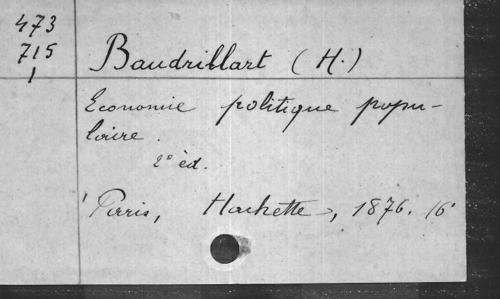 473
715
1
Baudrillart (H.)
Economie politique popu-
laire.
2e éd.
Paris, Hachette, 1876. 16°